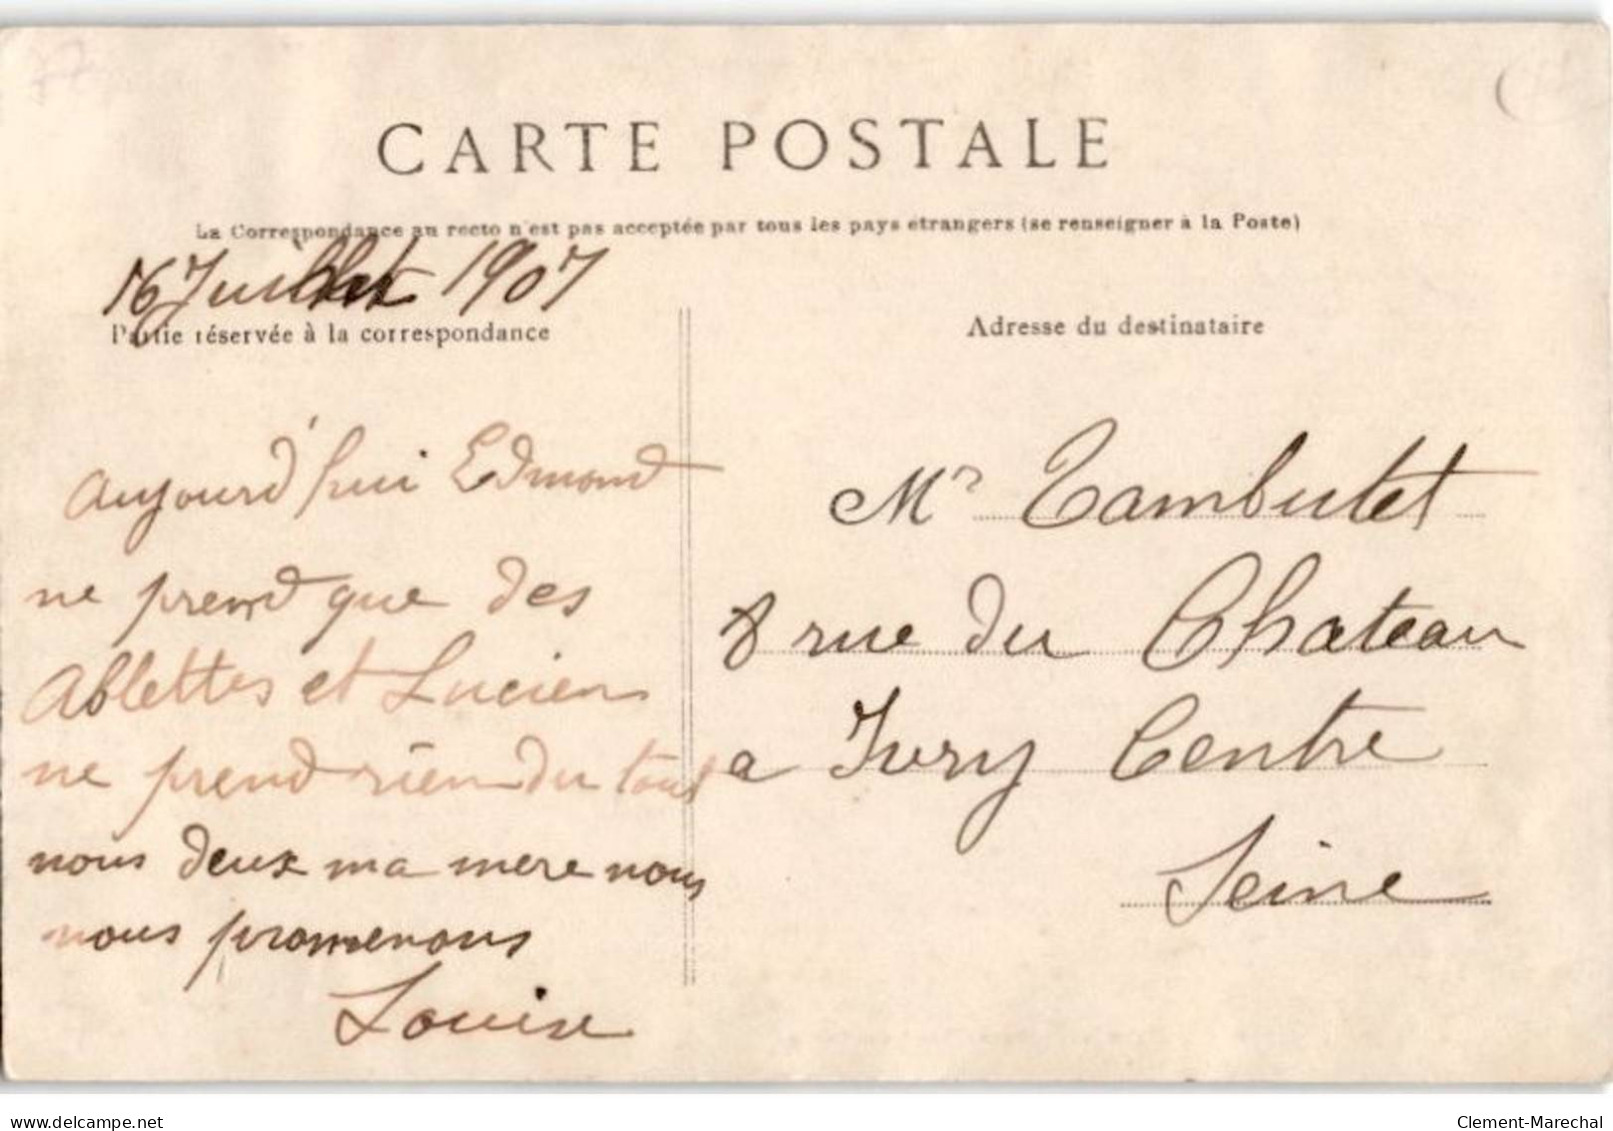 CARTE POSTALE
La Correspondance au recto n'est pas acceptée par tous les pays étrangers (se renseigner à la Poste)
16 Juillet 1907
Partie réservée à la correspondance
Adresse du destinataire
Aujourd'hui Edmond
ne prend que des
Ablettes et Lucien
ne prend rien du tout
nous deux ma mere nous
nous promenons
Louise
Mr Tambutet
8 rue du Chateau
a Ivry Centre
Seine
77
delcampe.net
Clement-Marechal